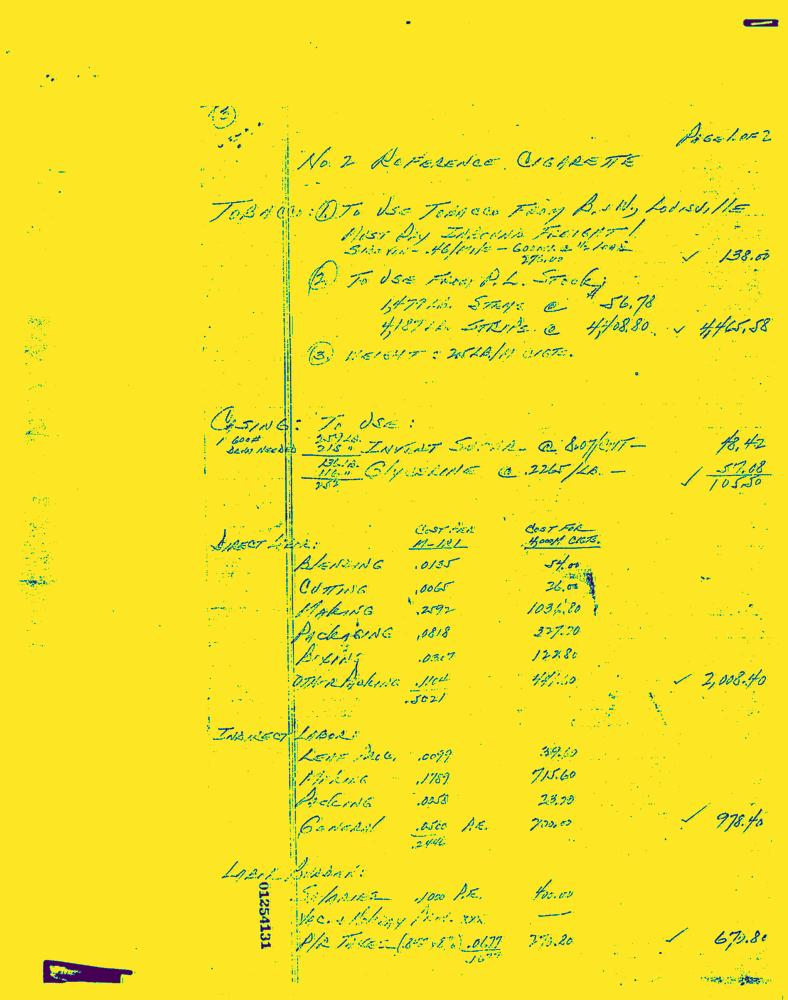 (3)
PAGE 1 OF 2
No. 2 REFERENCE CIGARETTE
TOBACCO: (1) TO USE TOBACCO FROM B.&W., LOUISVILLE
MUST PAY INBOUND FREIGHT!
.46/MILE – 600 MI.
276.00 ✓ 138.00
(2) TO USE FROM P.L. STOCK;
1,477 LB. STEMS @ $56.78
4,187 LB. STRIPS @ 4,408.80 ✓ 4,465.58
(3) WEIGHT: 2.5 LB/M CIGTS.
CASING: TO USE:
1 600#
NEEDED
INVERT SUGAR @ 8.07/CWT – 48.42
136 LB. GLYCERINE @ .2265/LB. – 57.08
252 ✓ 105.50
DIRECT LABOR:
COST PER COST FOR
4,000M CIGTS.
BLENDING .0135 54.00
CUTTING .0065 26.00
MAKING .2592 1036.80
PACKAGING .0818 327.20
BOXING .0307 122.80
OTHER MAKING .1104 441.60 ✓ 2,008.40
.5021
INDIRECT LABOR:
LEAF PROC. .0099 39.60
MAKING .1789 715.60
PACKING .0058 23.20
GENERAL .0500 P.E. 200.00 ✓ 978.40
.2446
LABOR BURDEN:
SALARIES .1000 P.E. 400.00
VAC. & HOLIDAY XXX —
P/R TAXES .0677 270.80 ✓ 670.80
.1677
01254131